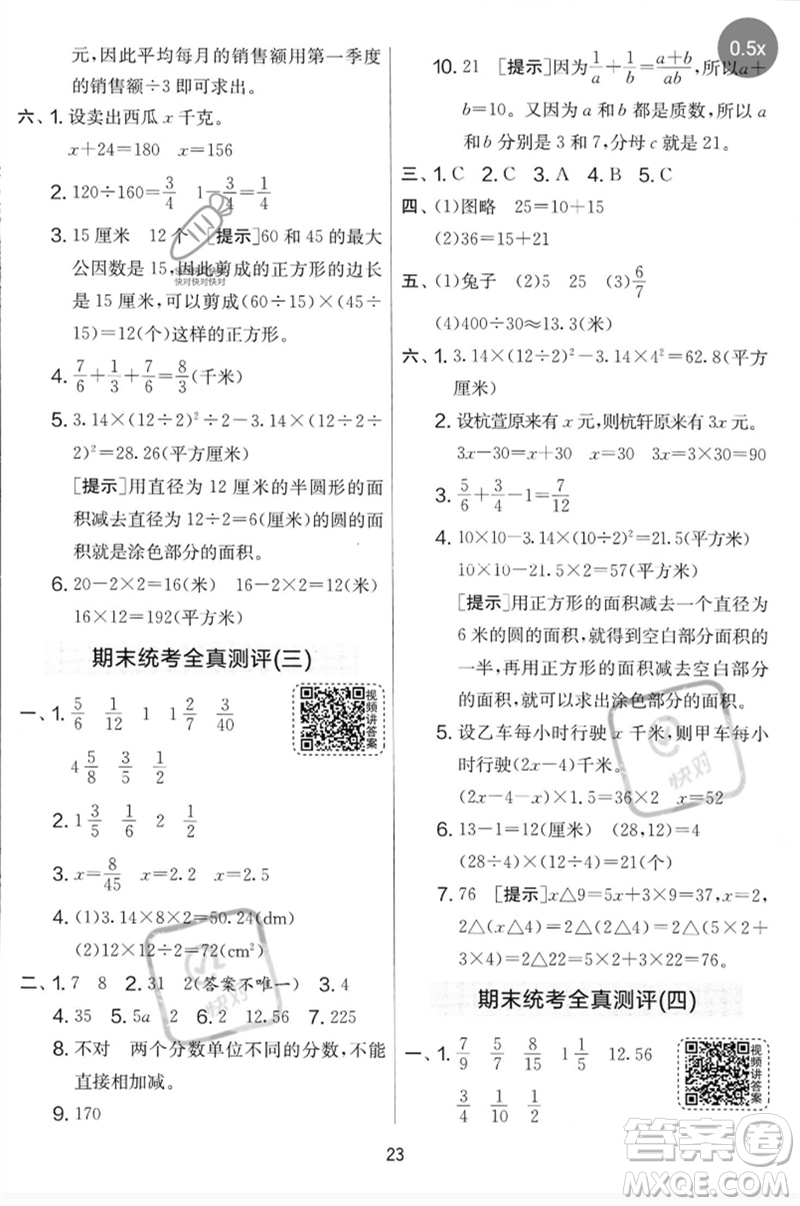 元,因此平均每月的销售额用第一季度
的销售额÷3即可求出。
六、1. 设卖出西瓜 x 千克。
x+24=180  x=156
2. 120÷160=3/4  1-3/4=1/4
3. 15厘米  12个  [提示]60和45的最大
公因数是15,因此剪成的正方形的边长
是15厘米,可以剪成(60÷15)×(45÷
15)=12(个)这样的正方形。
4. 7/6+1/3+7/6=8/3(千米)
5. 3.14×(12÷2)²÷2-3.14×(12÷2÷
2)²=28.26(平方厘米)
[提示]用直径为12厘米的半圆形的面
积减去直径为12÷2=6(厘米)的圆的面
积就是涂色部分的面积。
6. 20-2×2=16(米)  16-2×2=12(米)
16×12=192(平方米)
期末统考全真测评(三)
一、1. 5/6  1/12  1  1 2/7  3/40
4 5/8  3/5  1/2
视频讲答案
2. 1 3/5  1/6  2  1/2
3. x=8/45  x=2.2  x=2.5
4. (1)3.14×8×2=50.24(dm)
(2)12×12÷2=72(cm²)
二、1. 7  8  2. 31  2(答案不唯一)  3. 4
4. 35  5. 5a  2  6. 2  12.56  7. 225
8. 不对  两个分数单位不同的分数,不能
直接相加减。
9. 170
0.5x
10. 21  [提示]因为1/a+1/b=(a+b)/ab,所以a+
b=10。又因为a和b都是质数,所以a
和b分别是3和7,分母c就是21。
三、1. C  2. C  3. A  4. B  5. C
四、(1)图略  25=10+15
(2)36=15+21
五、(1)兔子  (2)5  25  (3)6/7
(4)400÷30≈13.3(米)
六、1. 3.14×(12÷2)²-3.14×4²=62.8(平方
厘米)
2. 设杭萱原来有x元,则杭轩原来有3x元。
3x-30=x+30  x=30  3x=3×30=90
3. 5/6+3/4-1=7/12
4. 10×10-3.14×(10÷2)²=21.5(平方米)
10×10-21.5÷2=56.75(平方米)
[提示]用正方形的面积减去一个直径为
6米的圆的面积,就得到空白部分面积的
一半,再用正方形的面积减去空白部分
的面积,就可以求出涂色部分的面积。
5. 设乙车每小时行驶x千米,则甲车每小
时行驶(2x-4)千米。
(2x-4-x)×1.5=36×2  x=52
6. 13-1=12(厘米)  (28,12)=4
(28÷4)×(12÷4)=21(个)
7. 76  [提示]x△9=5x+3×9=37,x=2,
2△(x△4)=2△(2△4)=2△(5×2+
3×4)=2△22=5×2+3×22=76。
期末统考全真测评(四)
一、1. 7/9  5/7  8/15  1 1/5  12.56
3/4  1/10  1/2
视频讲答案
23
快对快对快对
快对快对快对
快对
快对
答案卷
MXQE.COM